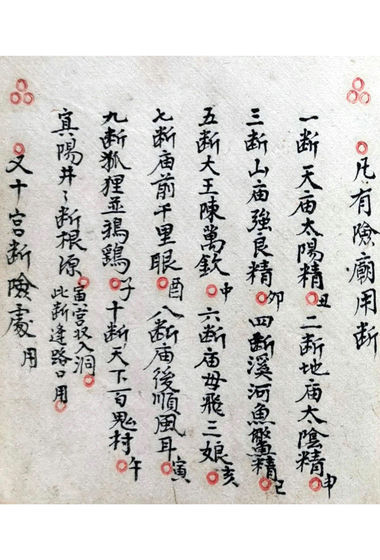 凡有險廟用断
一断天庙太陽精丑 二断地庙太陰精申
三断山庙強良精卯 四断溪河魚鱉精巳
五断大王陳萬欽申 六断庙母飛三娘亥
七断庙前千里眼酉 八断庙後順風耳寅
九断狐狸並鴉鷄子 十断天下百鬼村午
寘陽井々断根源 寅宮収入洞 此断逢路口用
又十宮断險處用